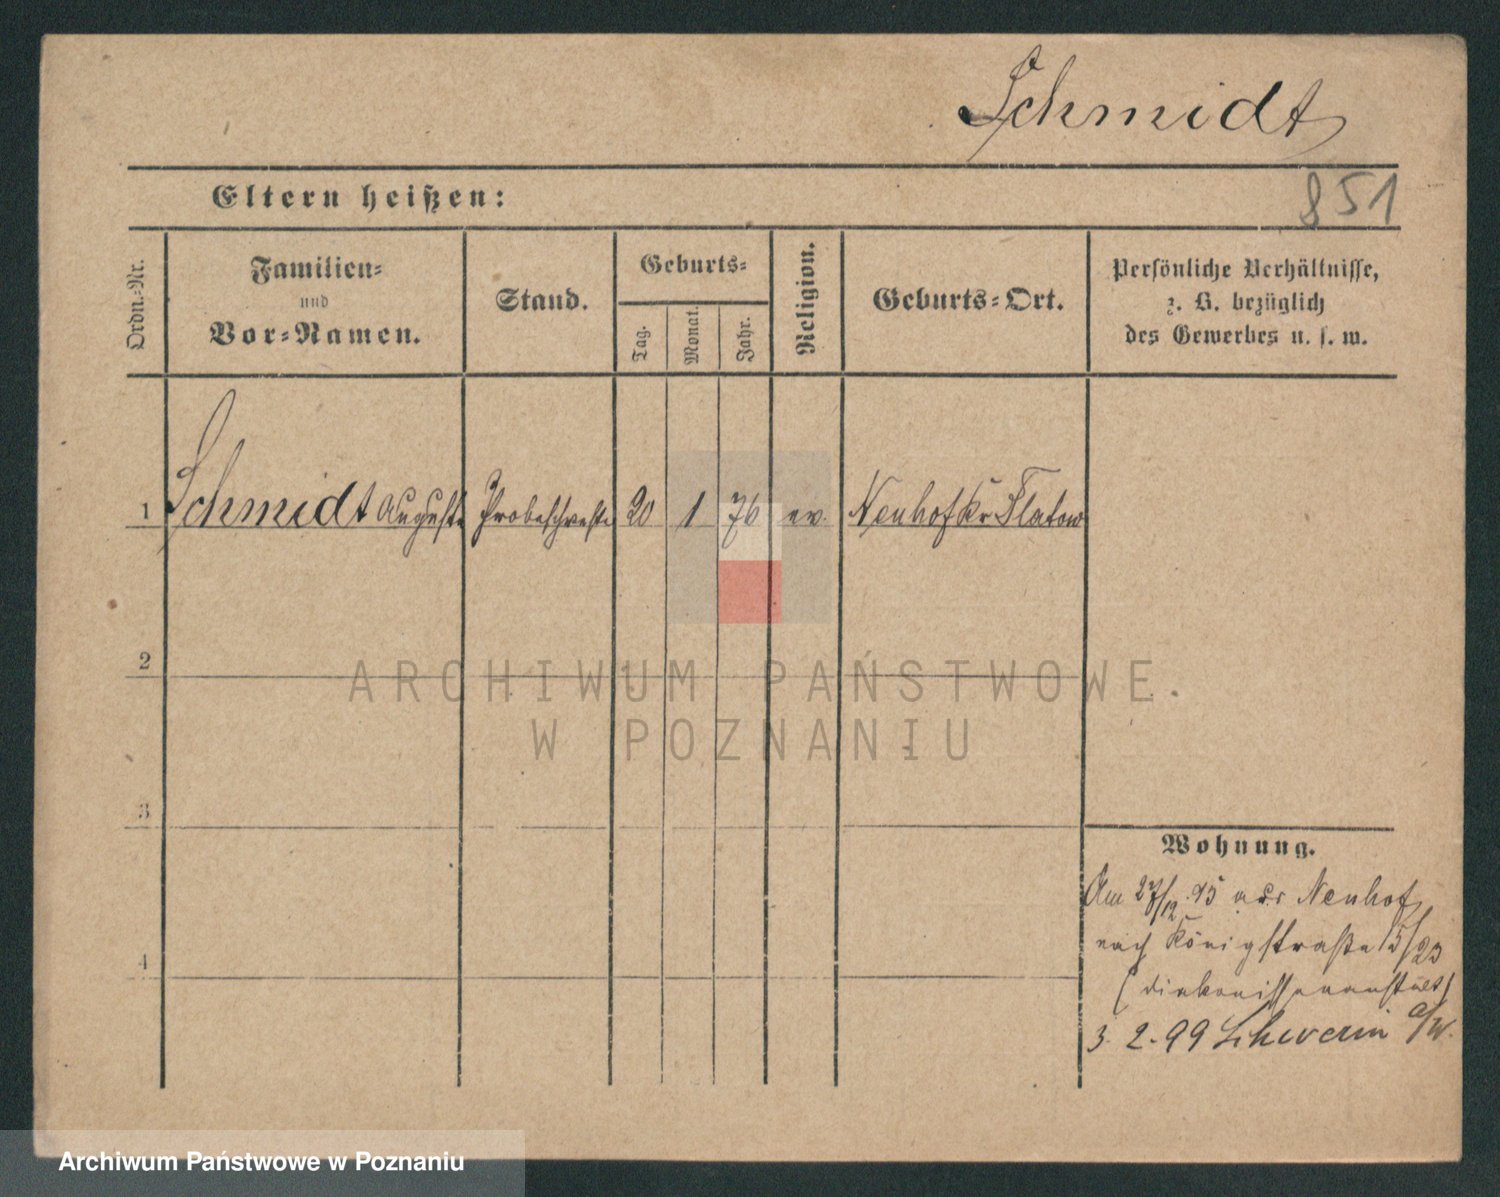 Schmidt
851
Eltern heißen:
Ordn.-Nr.
Familien-
und
Vor-Namen.
Stand.
Geburts-
Tag.
Monat.
Jahr.
Religion.
Geburts-Ort.
Persönliche Verhältnisse,
z. B. bezüglich
des Gewerbes u. s. w.
1 Schmidt Auguste Probeschwester 20 1 76 ev. Neuhof Kr Flatow
2
ARCHIWUM PAŃSTWOWE
W POZNANIU
3
4
Wohnung.
Am 27/12. 95 aus Neuhof
nach Königstraße 15/23
(Diakonissenanstalt)
3. 2. 99 Schwerin a/W.
Archiwum Państwowe w Poznaniu